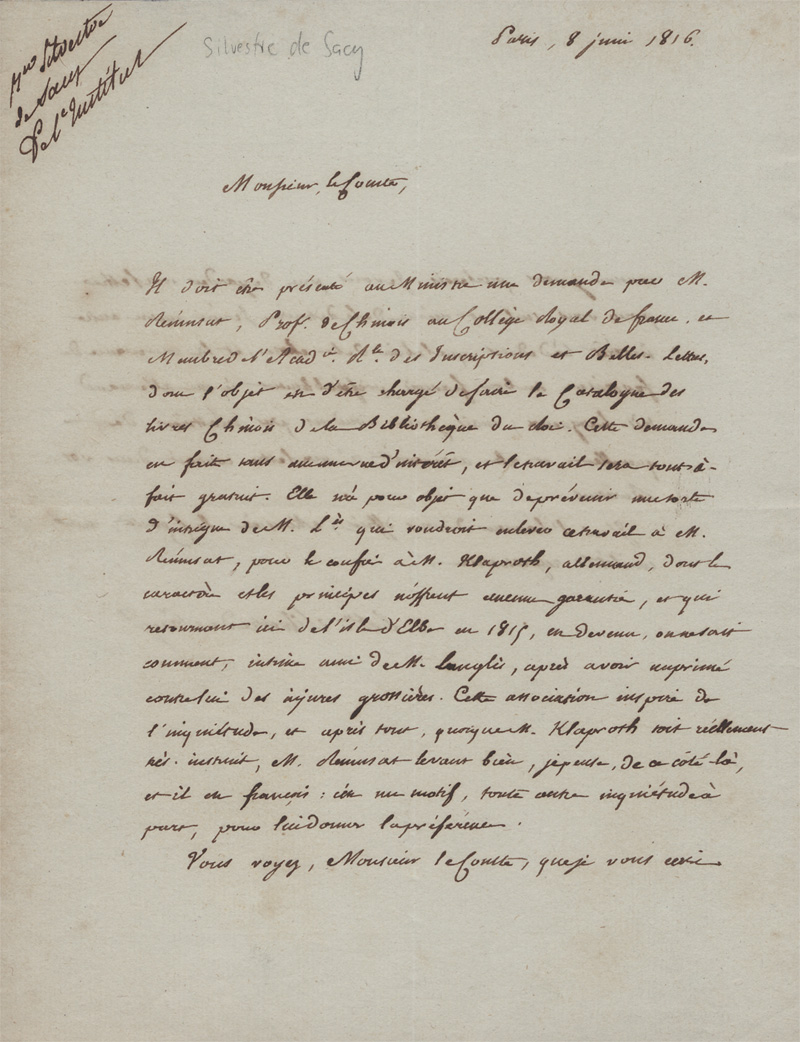 Mr Silvestre
de Sacy
De l'Institut
Silvestre de Sacy
Paris, 8 juin 1816.
Monsieur le Comte,
Il doit être présenté au Ministre une demande pour M.
Rémusat, Prof. de Chinois au Collège Royal de france. et
Membre de l'Acad.ie R.le des Inscriptions et Belles-Lettres,
dont l'objet est d'être chargé de faire le Catalogue des
livres Chinois de la Bibliothèque du Roi. Cette demande
est faite sans aucune vue d'intérêt, et le travail sera tout-à-
fait gratuit. Elle n'a pour objet que de prévenir une sorte
d'intrigue de M. L.ès qui voudroit enlever ce travail à M.
Rémusat, pour le confier à M. Klaproth, allemand, dont le
caractère et les principes n'offrent aucune garantie, et qui
retournant ici de l'isle d'Elbe en 1815, est devenu, on ne sait
comment, intime ami de M. Langlès, après avoir imprimé
contre lui des injures grossières. Cette association inspire de
l'inquiétude, et après tout, quoique M. Klaproth soit réellement
très-instruit, M. Rémusat le vaut bien, je pense, de ce côté-là,
et il est françois : c'est un motif, toute autre inquiétude à
part, pour lui donner la préférence.
Vous voyez, Monsieur le Comte, que je vous écris